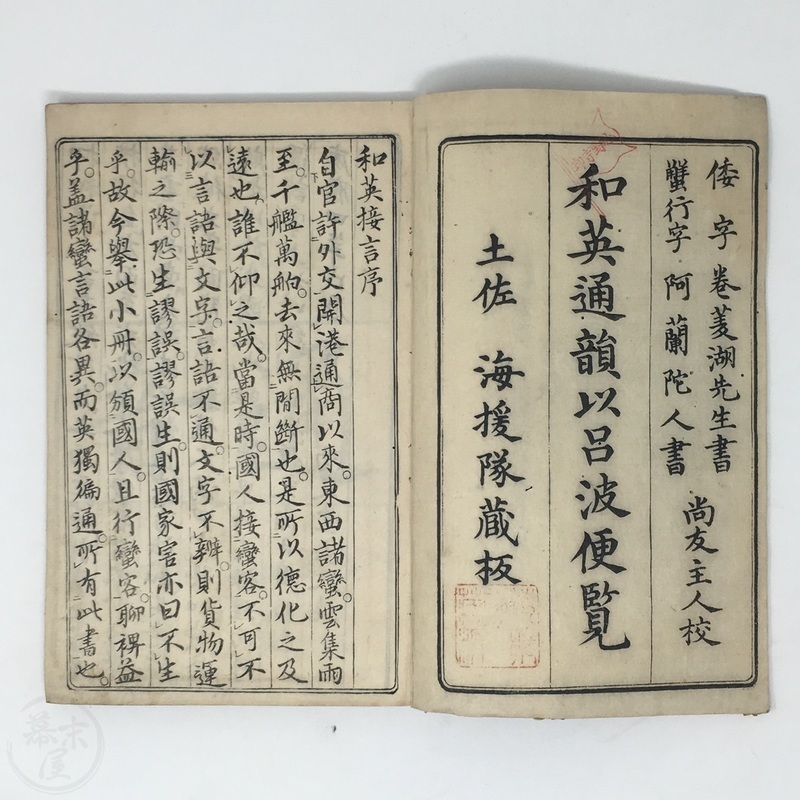 倭字 卷菱湖先生書
蟹行字 阿蘭陀人書
尚友主人校
和英通韻以呂波便覧
土佐 海援隊蔵板
和英接言序
自官許外交開港通商以來東西諸蠻雲集雨
至千艦萬舶去來無間斷也是所以德化之及
遠也誰不仰之哉當是時國人接蠻客不可不
以言語與文字言語不通文字不辨則貨物運
輸之際恐生謬誤謬誤生則國家害亦曰不生
乎故今舉此小冊以頒國人且行蠻客聊裨益
乎蓋諸蠻言語各異而英獨徧通所有此書也
幕末屋